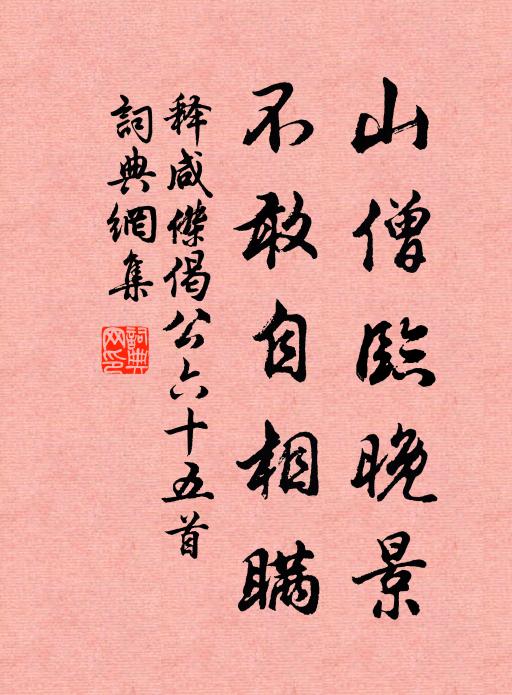 山僧臨晚景
不敢自相瞞
释咸傑偈公六十五首
詞典網集
詞典网印